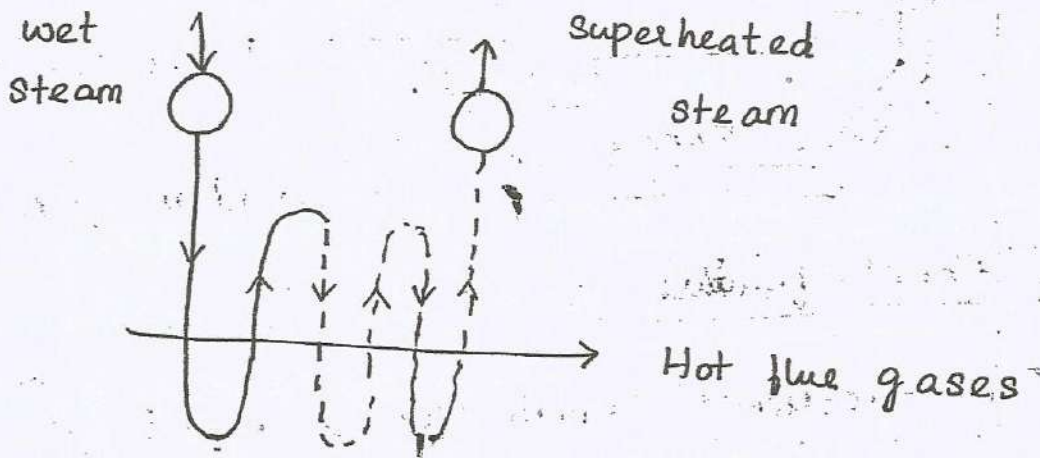 wet
steam
superheated
steam
Hot flue gases